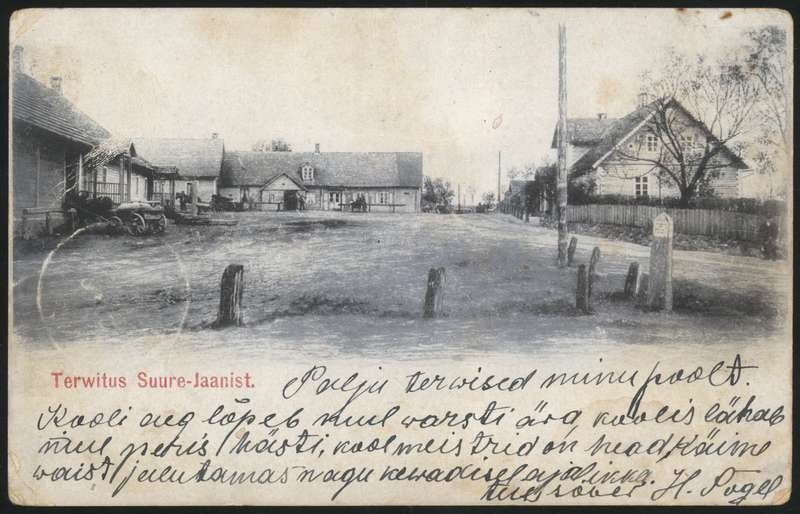 Terwitus Suure-Jaanist.
Palju terwised minu poolt.
Kooli aeg lõpeb mul warsti ära, koolis lähab
mul peris hästi, koolmeistrid on head, Käime
waist jalutamas nagu kewadisel ajal ikka.
H. Vogel